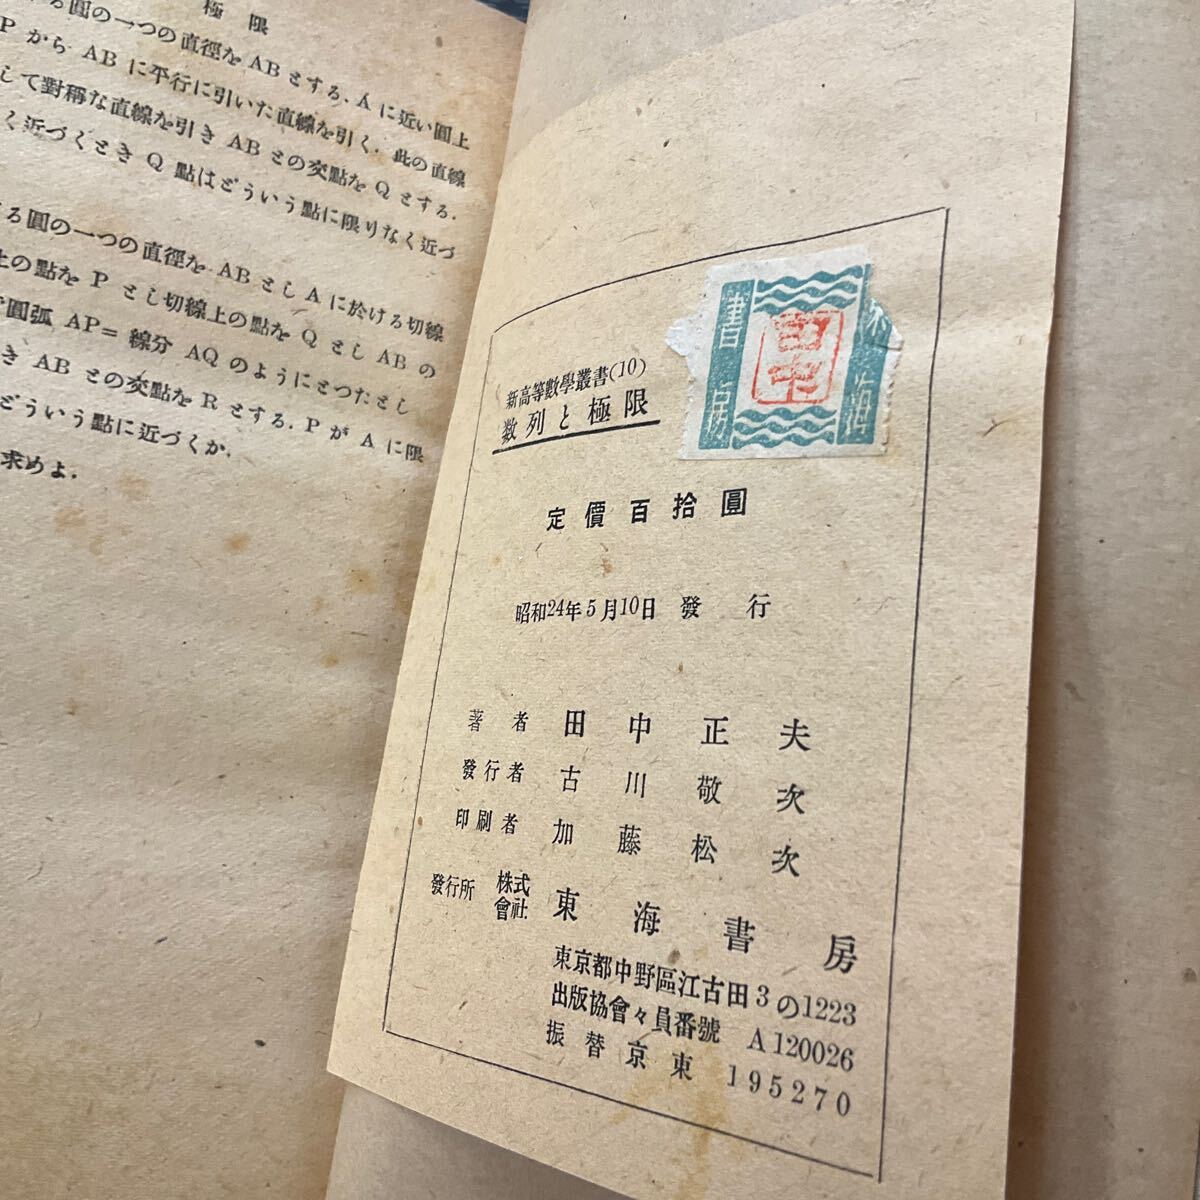 極限
る圓の一つの直徑を AB とする. A に近い圓上
P から AB に平行に引いた直線を引く. 此の直線
して對稱な直線を引き AB との交點を Q とする.
く近づくとき Q 點はどういう點に限りなく近づ
る圓の一つの直徑を AB とし A に於ける切線
上の點を P とし切線上の點を Q とし AB の
圓弧 AP= 線分 AQ のようにとつたとし
き AB との交點を R とする. P が A に限
どういう點に近づくか.
求めよ.
書房
田中
東海
新高等數學叢書(10)
数列と極限
定價百拾圓
昭和24年5月10日 發行
著者 田中正夫
發行者 古川敬次
印刷者 加藤松次
發行所 株式會社 東海書房
東京都中野區江古田3の1223
出版協會々員番號 A120026
振替京東 195270